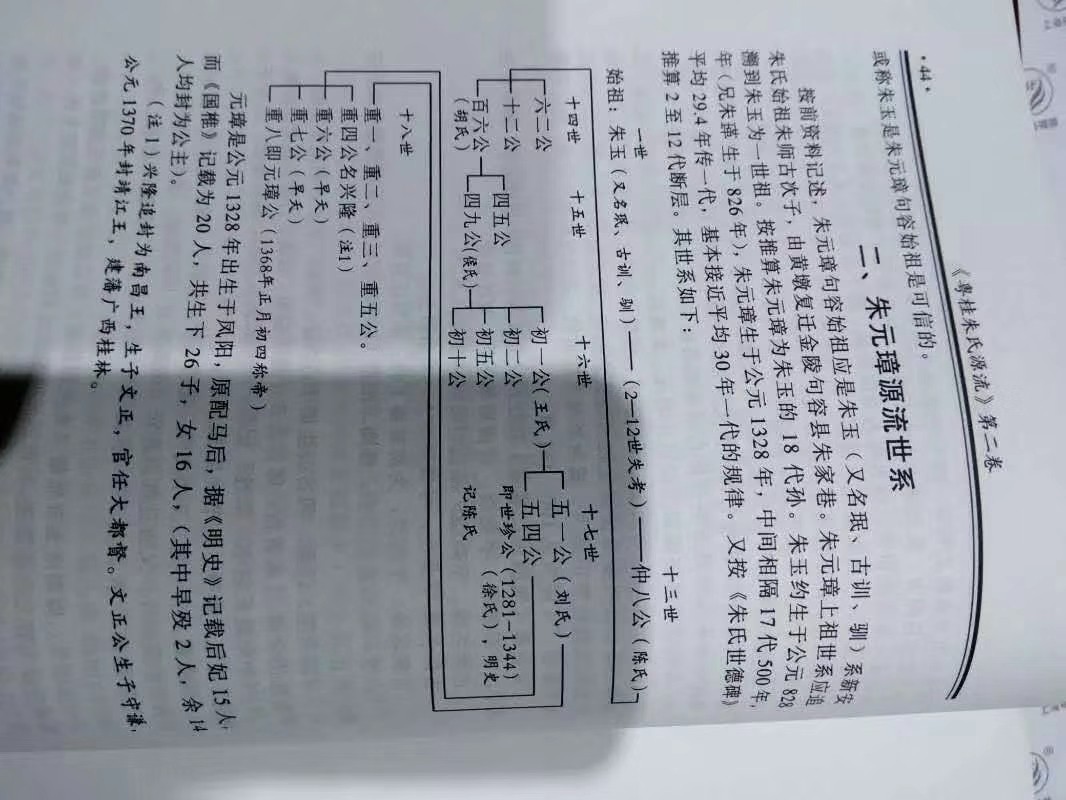 ·44·
《粤桂朱氏源流》第二卷
或称朱玉是朱元璋句容始祖是可信的。
二、朱元璋源流世系
按前资料记述，朱元璋句容始祖应是朱玉（又名珉、古训、驯）系新安
朱氏始祖朱师古次子，由黄墩复迁金陵句容县朱家巷。朱元璋上祖世系应追
溯到朱玉为一世祖。按推算朱元璋为朱玉的18代孙。朱玉约生于公元828
年（兄朱瑾生于826年），朱元璋生于公元1328年，中间相隔17代500年，
平均29.4年传一代，基本接近平均30年一代的规律。又按《朱氏世德碑》
推算2至12代断层。其世系如下：
一世
十三世
始祖：朱玉（又名珉、古训、驯）——（2—12世失考）——仲八公（陈氏）
十四世
十五世
十六世
十七世
六二公
十二公
百六公
（胡氏）
四五公
四九公（侯氏）
初一公（王氏）
初二公
初五公
初十公
五一公（刘氏）
五四公
即世珍公（1281-1344）
（徐氏），明史
记陈氏
十八世
重一、重二、重三、重五公。
重四公名兴隆（注1）
重六公（早夭）
重七公（早夭）
重八即元璋公（1368年正月初四称帝）
元璋是公元1328年出生于凤阳，原配马后，据《明史》记载后妃15人，
而《国榷》记载为20人，共生下26子，女16人，（其中早殁2人，余14
人均封为公主）。
（注1）兴隆追封为南昌王，生子文正，官任大都督。文正公生子守谦，
公元1370年封靖江王，建藩广西桂林。